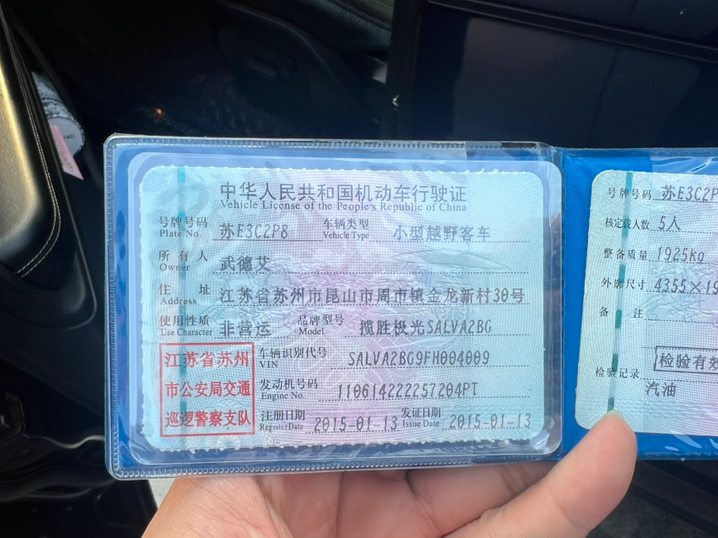 中华人民共和国机动车行驶证
Vehicle License of the People's Republic of China
号牌号码 苏E3C2P8 车辆类型 小型越野客车
Plate No. Vehicle Type
所有人 武德艾
Owner
住址 江苏省苏州市昆山市周市镇金龙新村30号
Address
使用性质 非营运 品牌型号 揽胜极光SALVA2BG
Use Character Model
江苏省苏州
市公安局交通
巡逻警察支队
车辆识别代号 SALVA2BG9FH004009
VIN
发动机号码 110614222257204PT
Engine No.
注册日期 2015-01-13 发证日期 2015-01-13
Register Date Issue Date
号牌号码 苏E3C2P
核定载人数 5人
整备质量 1925kg
外廓尺寸 4355×19
备注
检验有效
检验记录
汽油